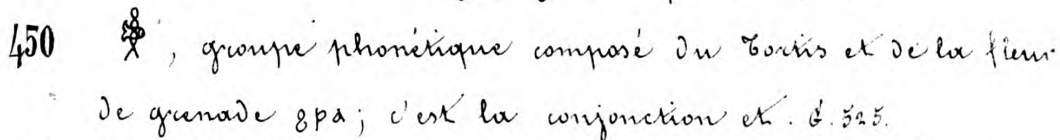 450 , groupe phonétique composé du Tortis et de la fleur
de grenade ϩⲣⲁ; c'est la conjonction et. G. 525.